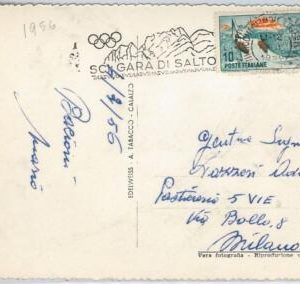 1956
SCI GARA DI SALTO
10
POSTE ITALIANE
EDELWEISS - A. TABACCO - CALALZO
Bacioni
Mario
Pasticceria 5 VIE
Via Bollo, 8
Milano
Vera fotografia - Riproduzione